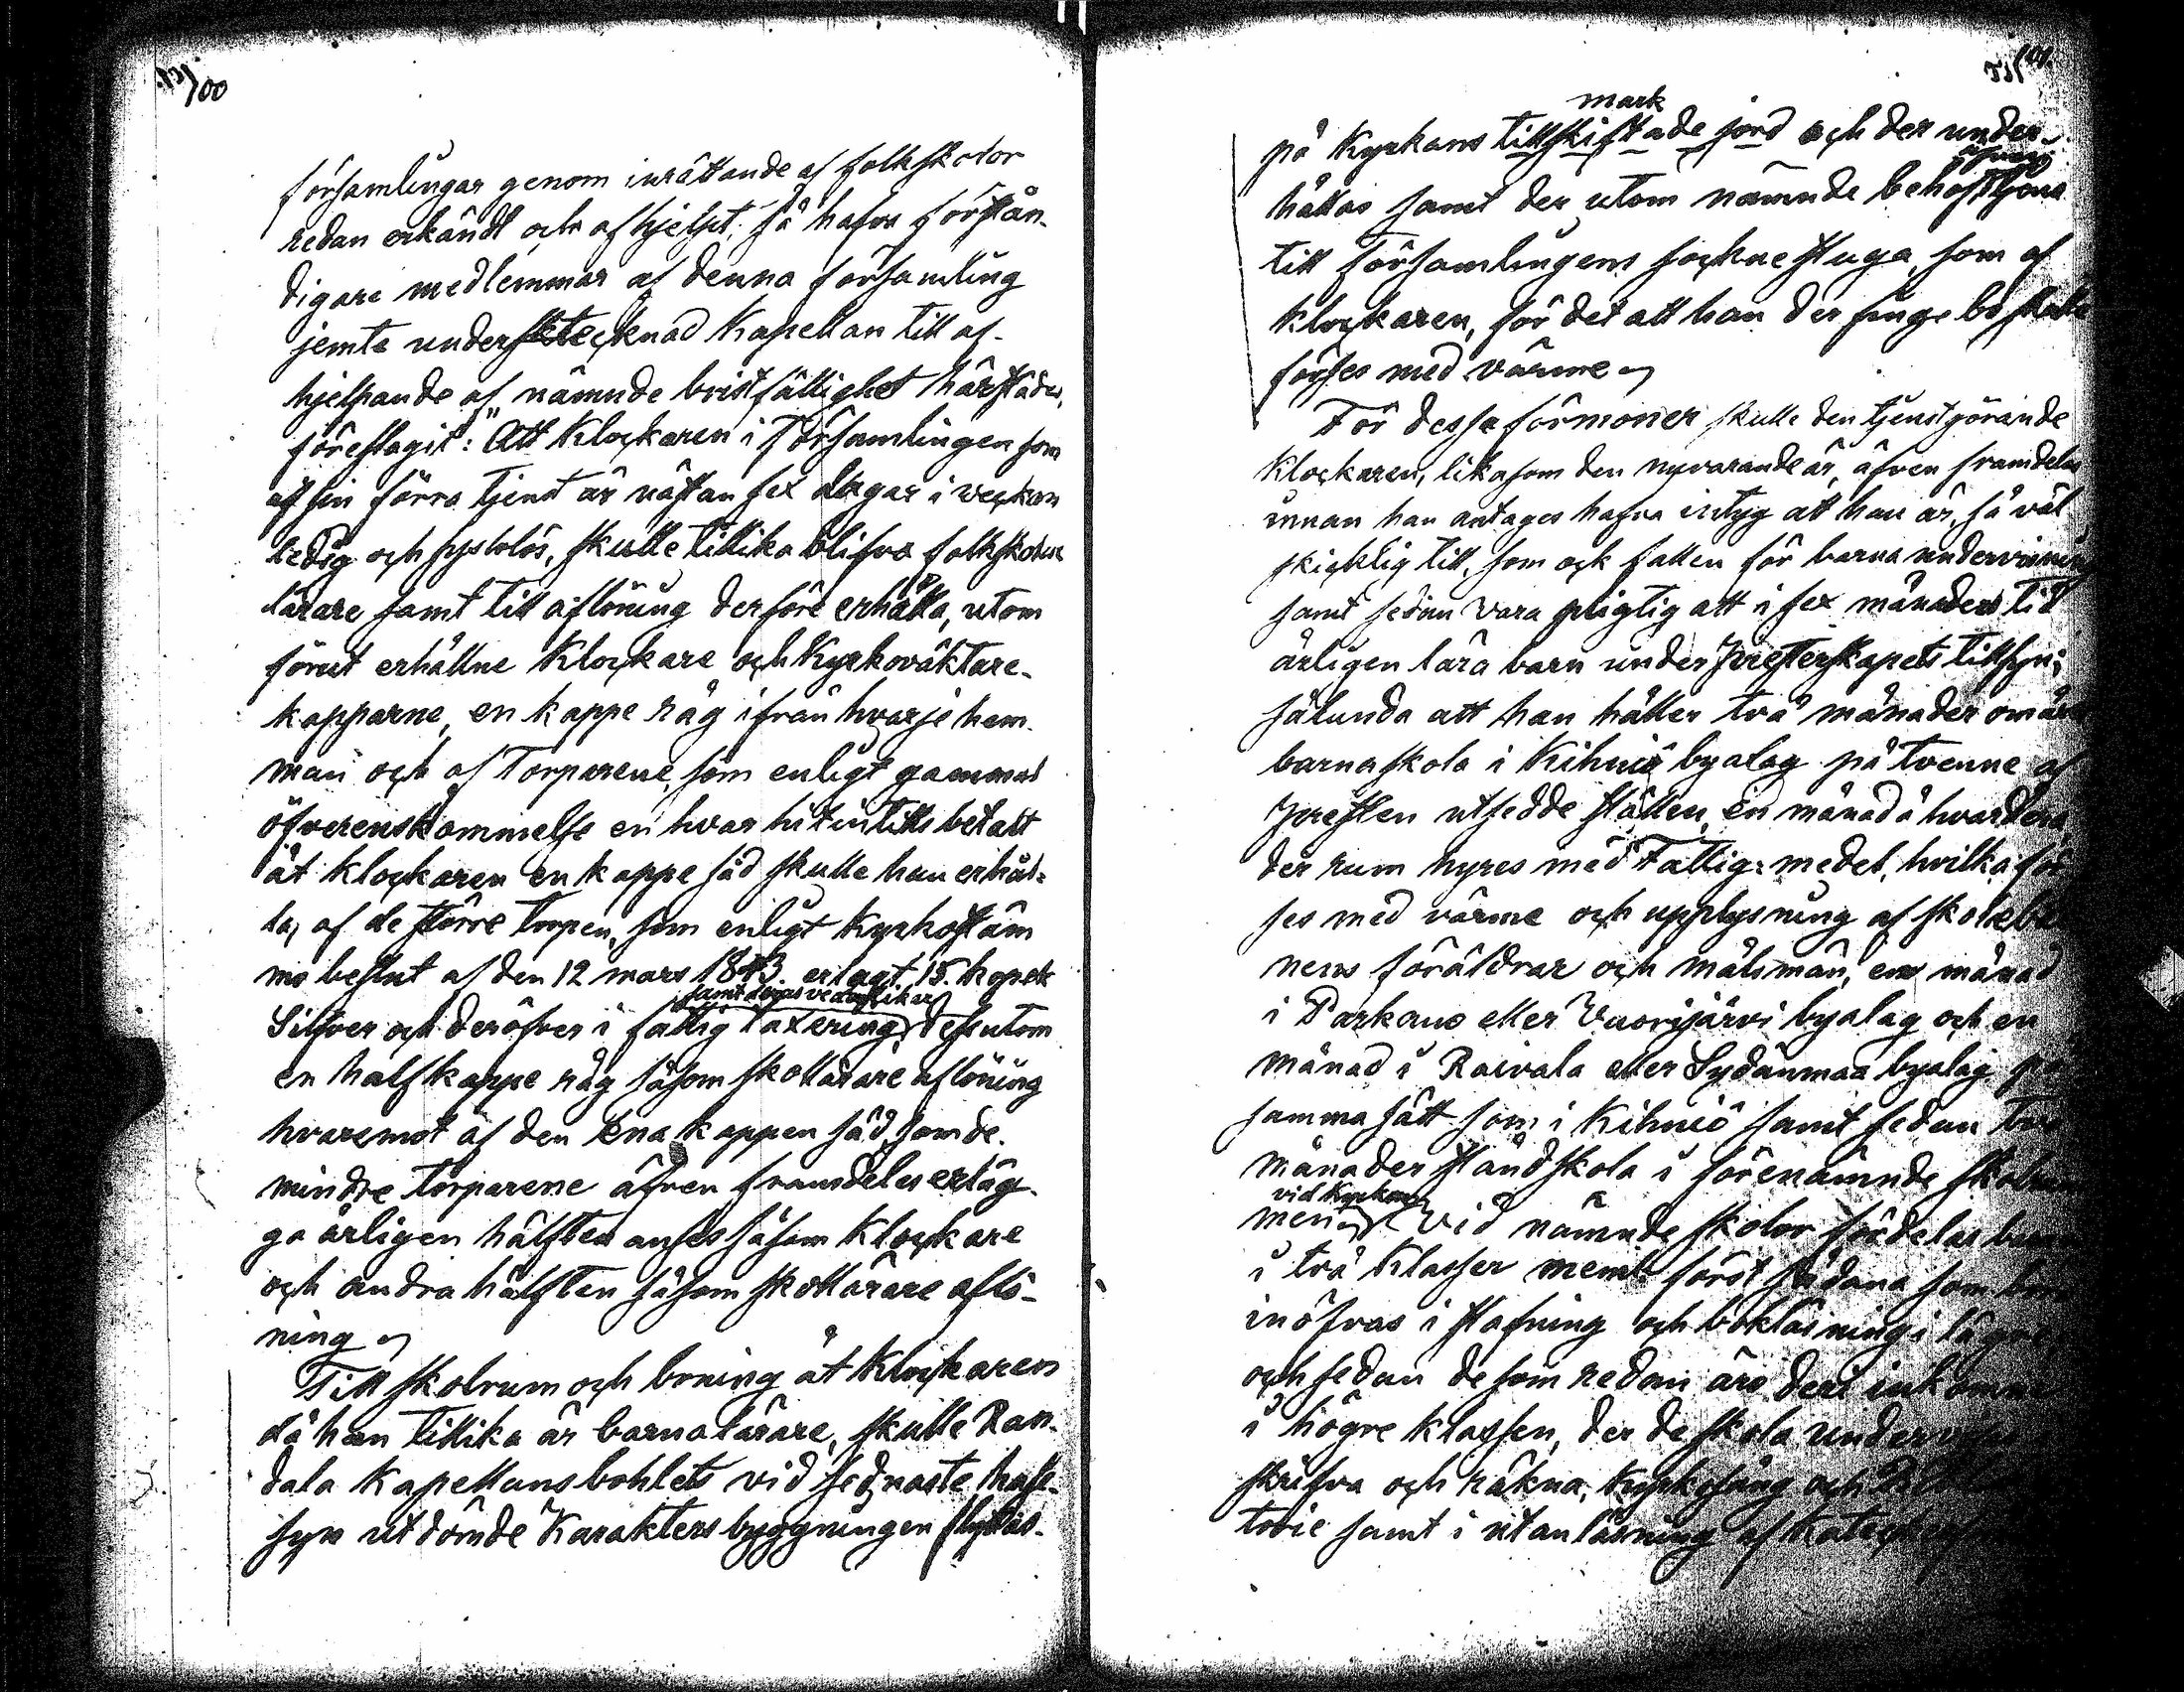 100
församlingar genom inrättande af folkskolor
redan erkändt och afhjelpt; så hafva förstån-
digare medlemmar af denna församling
jemte undertecknad Kapellan till af-
hjelpande af nämnde bristfällighet härstädes,
föreslagit: "Att Klockaren i Församlingen som
af sin förra tjenst är nästan sex dagar i veckan
ledig och syslolös, skulle tillika blifva folkskole
lärare samt till aflöning derföre erhålla, utom
förut erhållne Klockare och Kyrkoväktare-
kapparne, en kappe råg ifrån hvarje hem-
man och af Torparene, som enligt gammal
öfverenskommelse en hvar hitintills betalt
åt klockaren en kappe säd skulle han erhål-
la, af de större torpen, som enligt Kyrkostäm
mo beslut af den 12 mars 1843 erlagt 15. kopek
samt deras vederlikar
Silfver och deröfver i fattig taxering, dessutom
en half kappe råg såsom skollärare aflöning
hvaremot af den ena kappen säd, som de
mindre torparene äfven framdeles erläg-
ga årligen hälften anses såsom Klockare
och andra hälften såsom skollärare aflö-
ning
Till skolrum och boning åt Klockaren
då han tillika är barnalärare, skulle Ran-
dala Kapellansbohlets vid sednaste huse-
syn utdömde Karaktersbyggningen flyttas
101.
mark
på Kyrkans tillskiftade jord och der under-
hållas samt der utom nämnde behof tjena
till församlingens sockne stuga, som af
klockaren, för det att han der finge bo skulle
förses med värme
För dessa förmoner skulle den tjenstgörande
Klockaren, likasom den nyvarande är, äfven framdeles
innan han antages hafva intyg att han är, så väl
skicklig till, som ock fallen för barna undervisning
samt sedan vara pligtig att i sex månaders tid
årligen lära barn under Presterskapets tillsyn;
sålunda att han håller två månader om året
barnaskola i Kihniö byalag på tvenne af
Presten utsedde ställen, en månad å hvardera
der rum hyres med Fattig-medel, hvilka för
ses med värme och upplysning af skolebar
nens föräldrar och målsmän, en månad
i Parkano eller Vuorijärvi byalag och en
månad i Raivala eller Sydänmaa byalag på
samma sätt som i Kihniö samt sedan två
månader ståndskola i förenämnde skolrum
vid Kyrkan
men vid nämnde skolor fördelas barn
i två Klasser neml. först sådana som böra
inöfvas i stafning och bokläsning i lägre
och sedan de som redan äro deri inkomne
i högre klassen, der de skola undervisas
skrifva och räkna, kyrkosång och
torie samt i utanläsning af